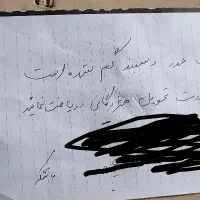 عدد دستبند گم شده است
تحویل مژدگانی دریافت نمائید
باتشکر